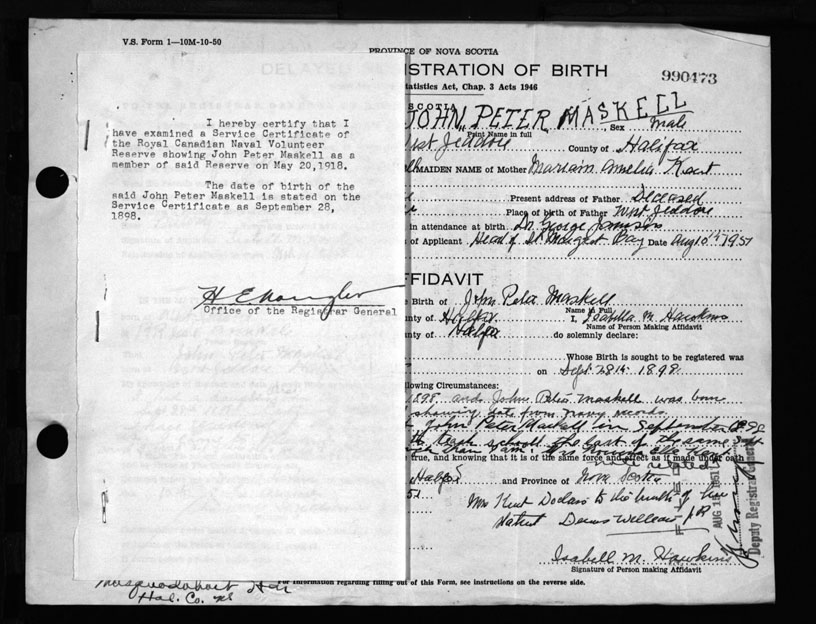 V.S. Form 1—10M-10-50
PROVINCE OF NOVA SCOTIA
DELAYED REGISTRATION OF BIRTH
990473
tatistics Act, Chap. 3 Acts 1946
I hereby certify that I
have examined a Service Certificate of
the Royal Canadian Naval Volunteer
Reserve showing John Peter Maskell as a
member of said Reserve on May 20,1918.
The date of birth of the
said John Peter Maskell is stated on the
Service Certificate as September 28,
1898.
Office of the Registrar General
SCOTIA
JOHN PETER MASKELL Sex Male
Print Name in full
West Jeddore County of Halifax
MAIDEN NAME of Mother Mariam Amelia Kent
Present address of Father Deceased
Place of birth of Father West Jeddore
in attendance at birth Dr. George Jamieson
of Applicant Head of St. Margaret Bay Date Aug 10th 1951
FFIDAVIT
e Birth of John Peter Maskell
Name in Full
nty of Halifax I, Isabella M. Hawkins
Name of Person Making Affidavit
nty of Halifax do solemnly declare:
Whose Birth is sought to be registered was
on Sept 28th 1898
llowing Circumstances:
1898 and John Peter Maskell was born
showing date from navy records
John Peter Maskell in September
teach school the last of the same Sept
true, and knowing that it is of the same force and effect as if made under oath
not related
Halifax and Province of Nova Scotia
51
Mrs Kent
FILED
AUG 1951
Deputy Registrar General
Isabell M. Hawkins
Signature of Person making Affidavit
For information regarding filling out of this Form, see instructions on the reverse side.
Musquodoboit Har
Hal. Co. NS